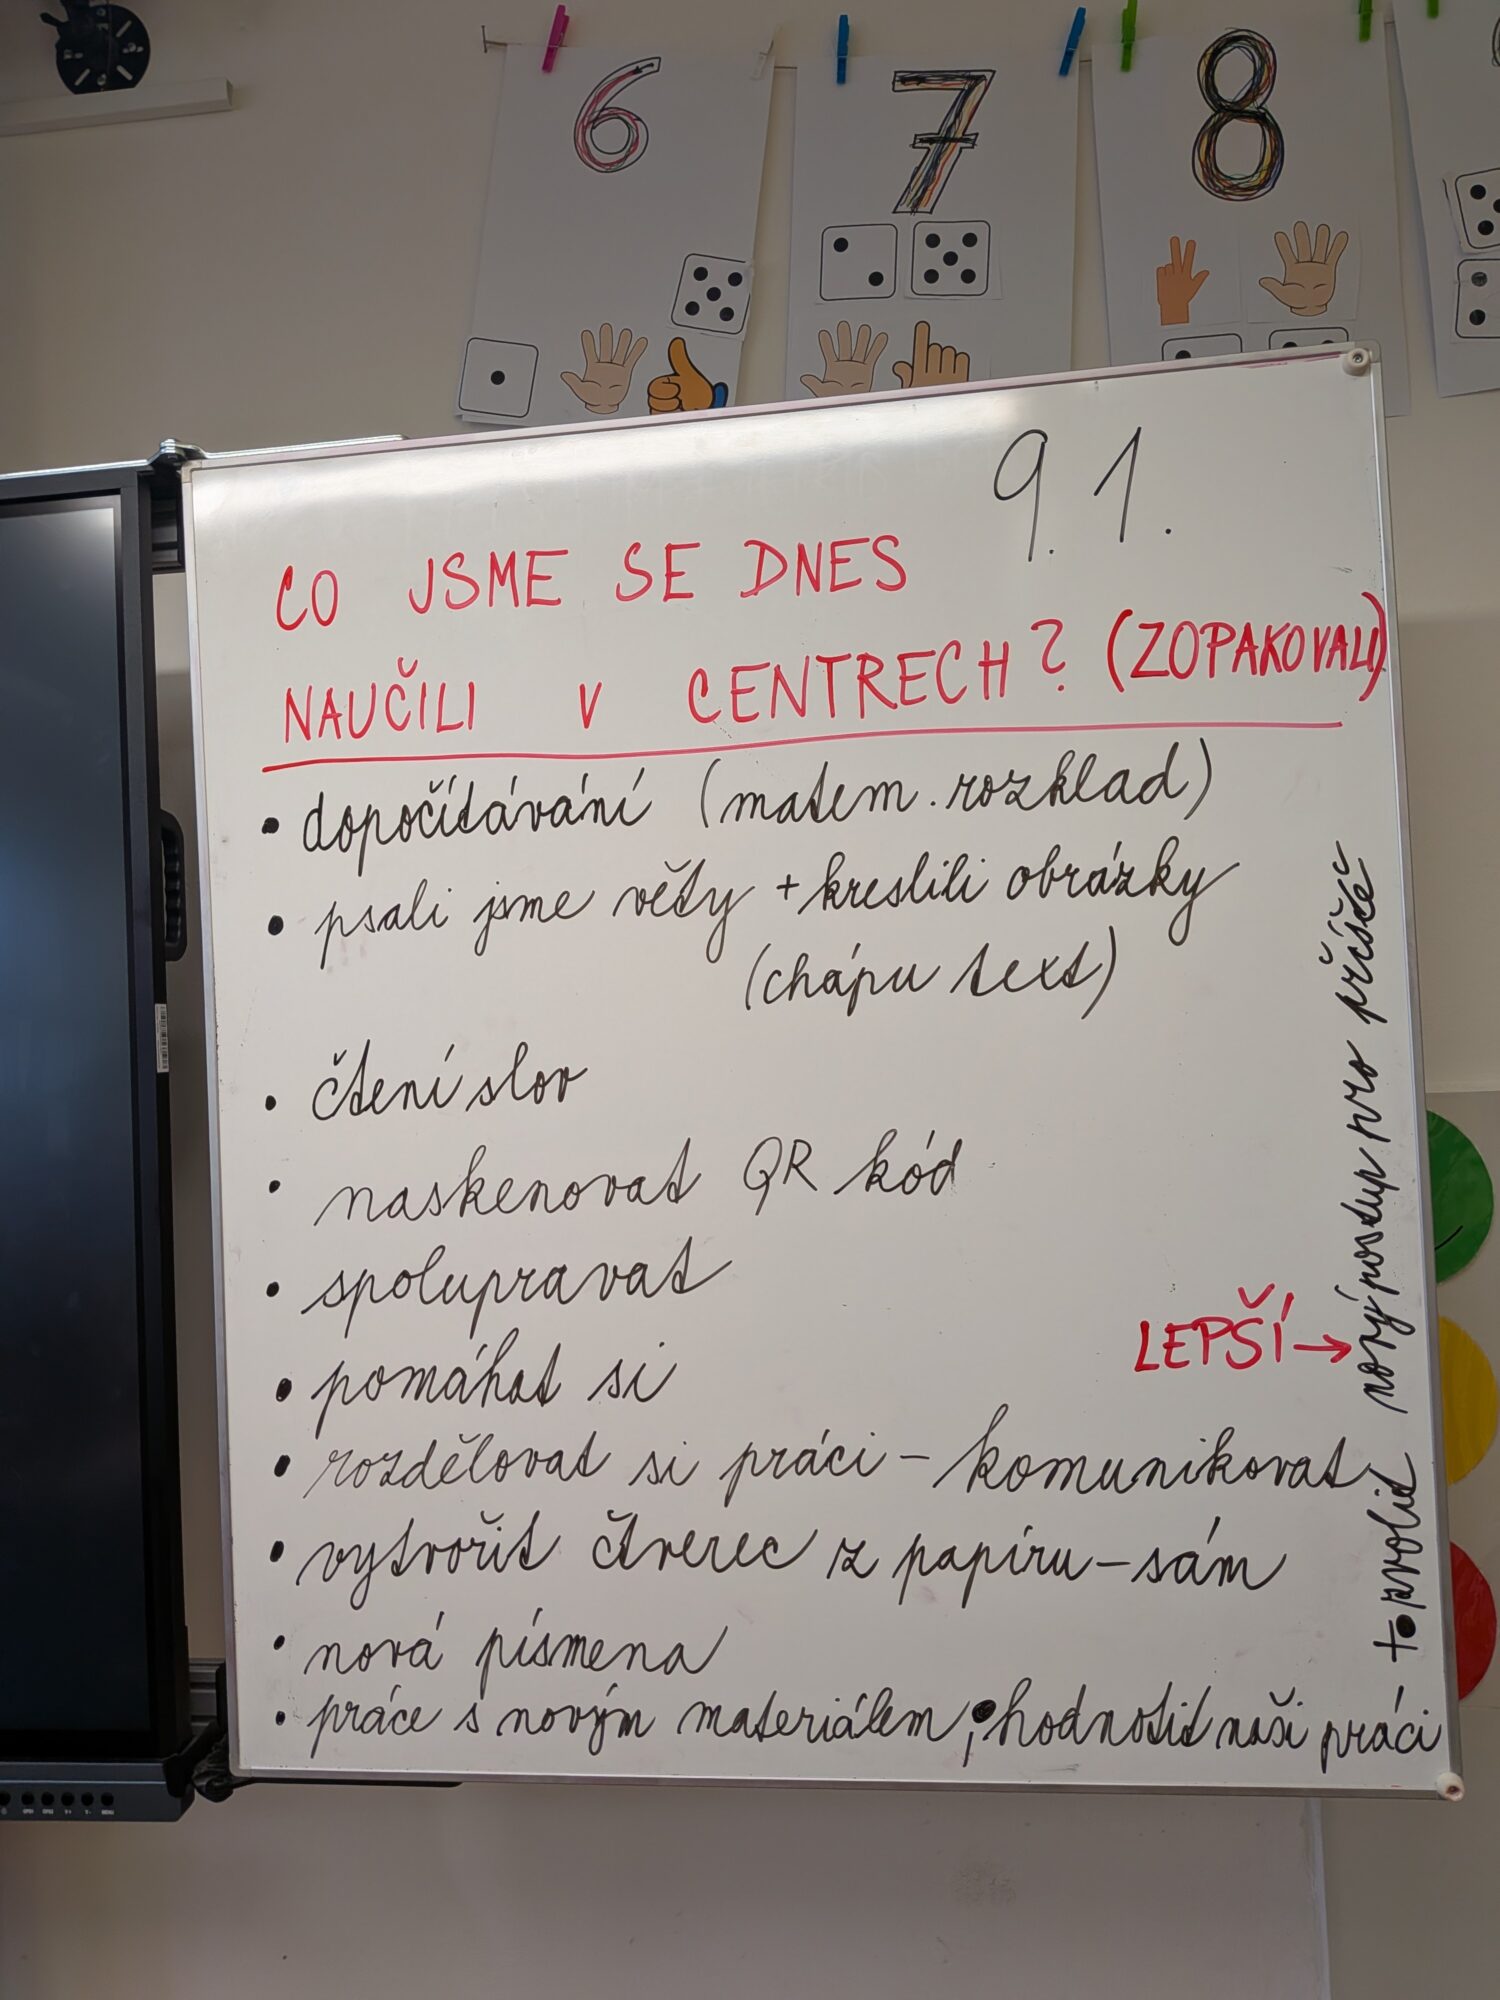 6
7
8
9. 1.
CO JSME SE DNES
NAUČILI V CENTRECH? (ZOPAKOVALI)
• dopočítávání (matem. rozklad)
• psali jsme věty + kreslili obrázky
(chápu text)
• čtení slov
• naskenovat QR kód
• spolupravat
• pomáhat si
• rozdělovat si práci – komunikovat
• vytvořit čtverec z papíru – sám
• nová písmena
• práce s novým materiálem, • hodnotit naši práci
+ • zvolit nový postup pro příště
LEPŠÍ →